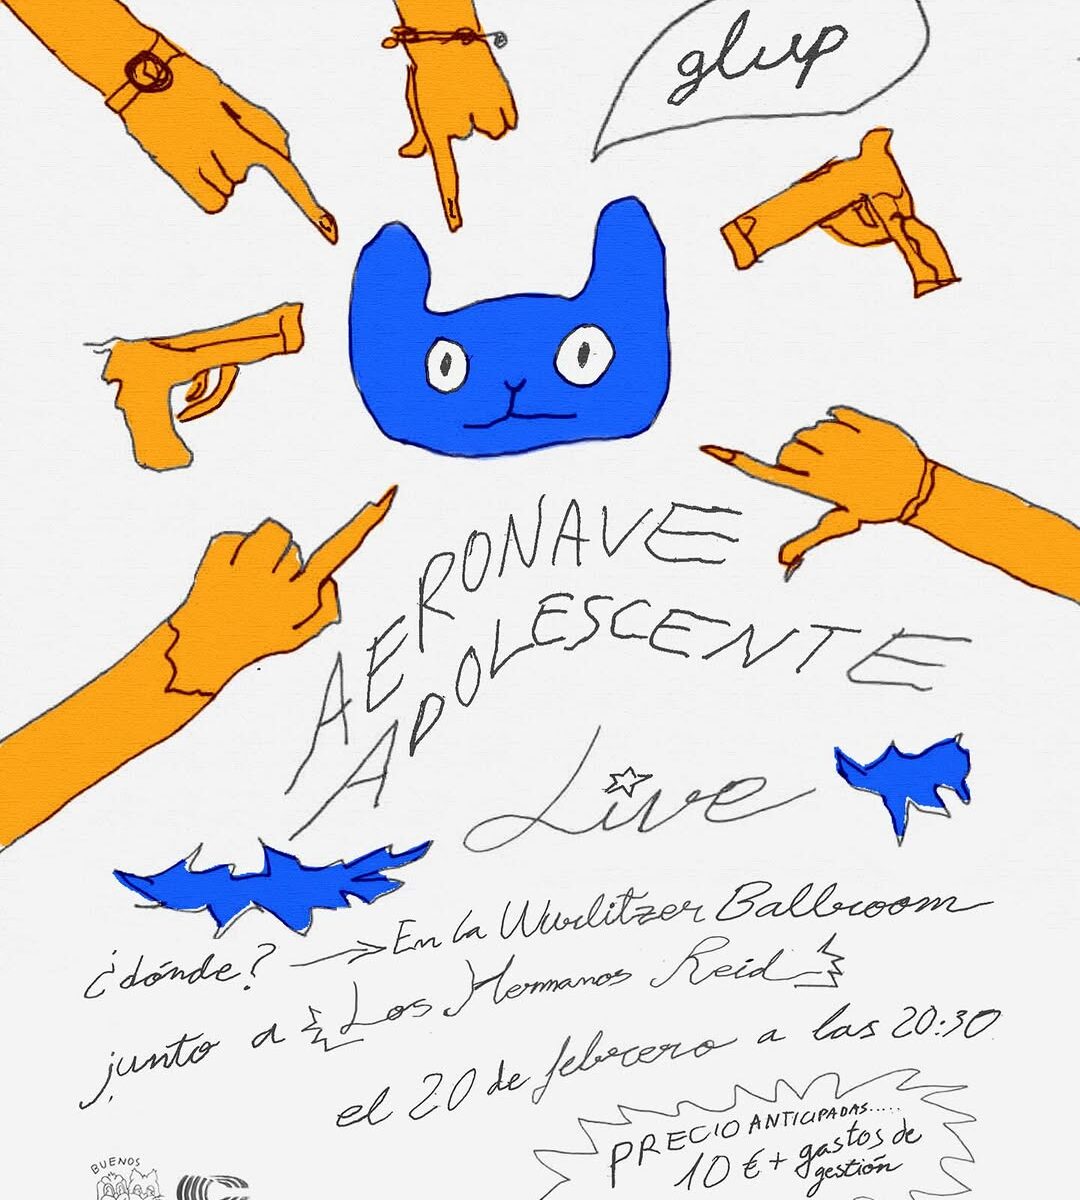 glup
AERONAVE
ADOLESCENTE
Live
¿dónde? → En la Wurlitzer Ballroom
junto a Los Hermanos Reid
el 20 de febrero a las 20:30
PRECIO ANTICIPADAS.....
10 € + gastos de
gestión
BUENOS